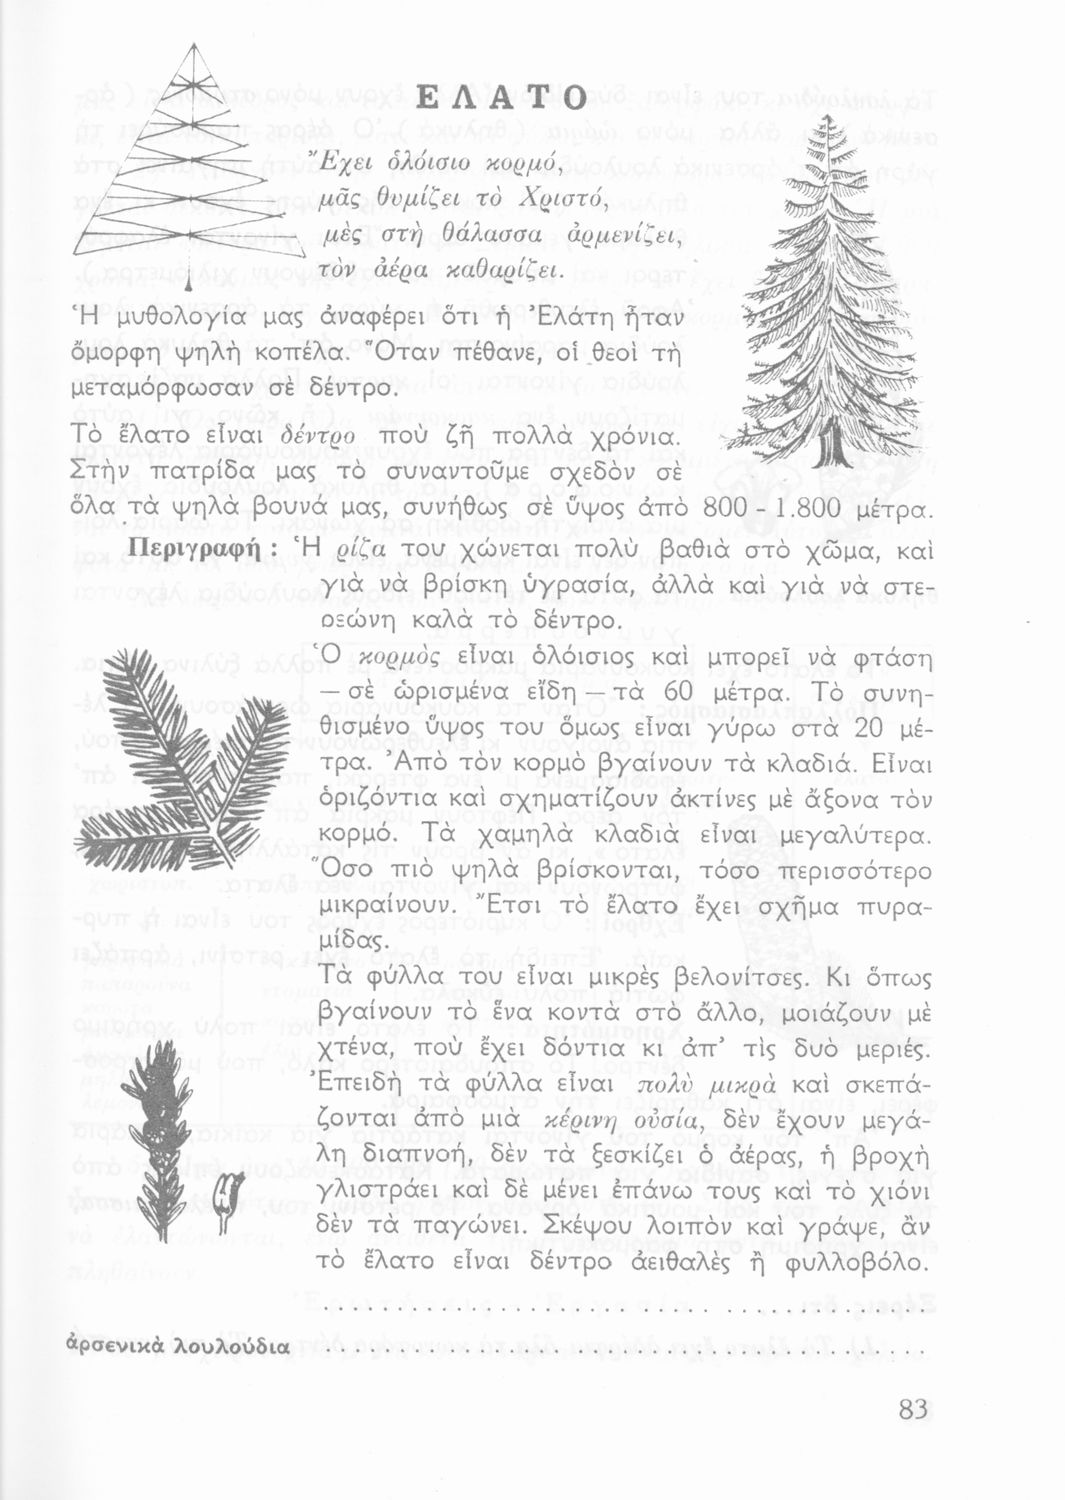 ΕΛΑΤΟ
Ἔχει ὁλόισιο κορμό,
μᾶς θυμίζει τὸ Χριστό,
μὲς στὴ θάλασσα ἀρμενίζει,
τὸν ἀέρα καθαρίζει.
Ἡ μυθολογία μας ἀναφέρει ὅτι ἡ Ἐλάτη ἦταν
ὄμορφη ψηλὴ κοπέλα. Ὅταν πέθανε, οἱ θεοὶ τὴ
μεταμόρφωσαν σὲ δέντρο.
Τὸ ἔλατο εἶναι δέντρο ποὺ ζῆ πολλὰ χρόνια.
Στὴν πατρίδα μας τὸ συναντοῦμε σχεδὸν σὲ
ὅλα τὰ ψηλὰ βουνά μας, συνήθως σὲ ὕψος ἀπὸ 800 - 1.800 μέτρα.
Περιγραφή : Ἡ ρίζα του χώνεται πολὺ βαθιὰ στὸ χῶμα, καὶ
γιὰ νὰ βρίσκη ὑγρασία, ἀλλὰ καὶ γιὰ νὰ στε-
ρεώνη καλὰ τὸ δέντρο.
Ὁ κορμὸς εἶναι ὁλόισιος καὶ μπορεῖ νὰ φτάση
— σὲ ὡρισμένα εἴδη — τὰ 60 μέτρα. Τὸ συνη-
θισμένο ὕψος του ὅμως εἶναι γύρω στὰ 20 μέ-
τρα. Ἀπὸ τὸν κορμὸ βγαίνουν τὰ κλαδιά. Εἶναι
ὁριζόντια καὶ σχηματίζουν ἀκτίνες μὲ ἄξονα τὸν
κορμό. Τὰ χαμηλὰ κλαδιὰ εἶναι μεγαλύτερα.
Ὅσο πιὸ ψηλὰ βρίσκονται, τόσο περισσότερο
μικραίνουν. Ἔτσι τὸ ἔλατο ἔχει σχῆμα πυρα-
μίδας.
Τὰ φύλλα του εἶναι μικρὲς βελονίτσες. Κι ὅπως
βγαίνουν τὸ ἕνα κοντὰ στὸ ἄλλο, μοιάζουν μὲ
χτένα, ποὺ ἔχει δόντια κι ἀπ' τὶς δυὸ μεριές.
Ἐπειδὴ τὰ φύλλα εἶναι πολὺ μικρὰ καὶ σκεπά-
ζονται ἀπὸ μιὰ κέρινη οὐσία, δὲν ἔχουν μεγά-
λη διαπνοή, δὲν τὰ ξεσκίζει ὁ ἀέρας, ἡ βροχὴ
γλιστράει καὶ δὲ μένει ἐπάνω τους καὶ τὸ χιόνι
δὲν τὰ παγώνει. Σκέψου λοιπὸν καὶ γράψε, ἂν
τὸ ἔλατο εἶναι δέντρο ἀειθαλὲς ἢ φυλλοβόλο.
ἀρσενικὰ λουλούδια
83